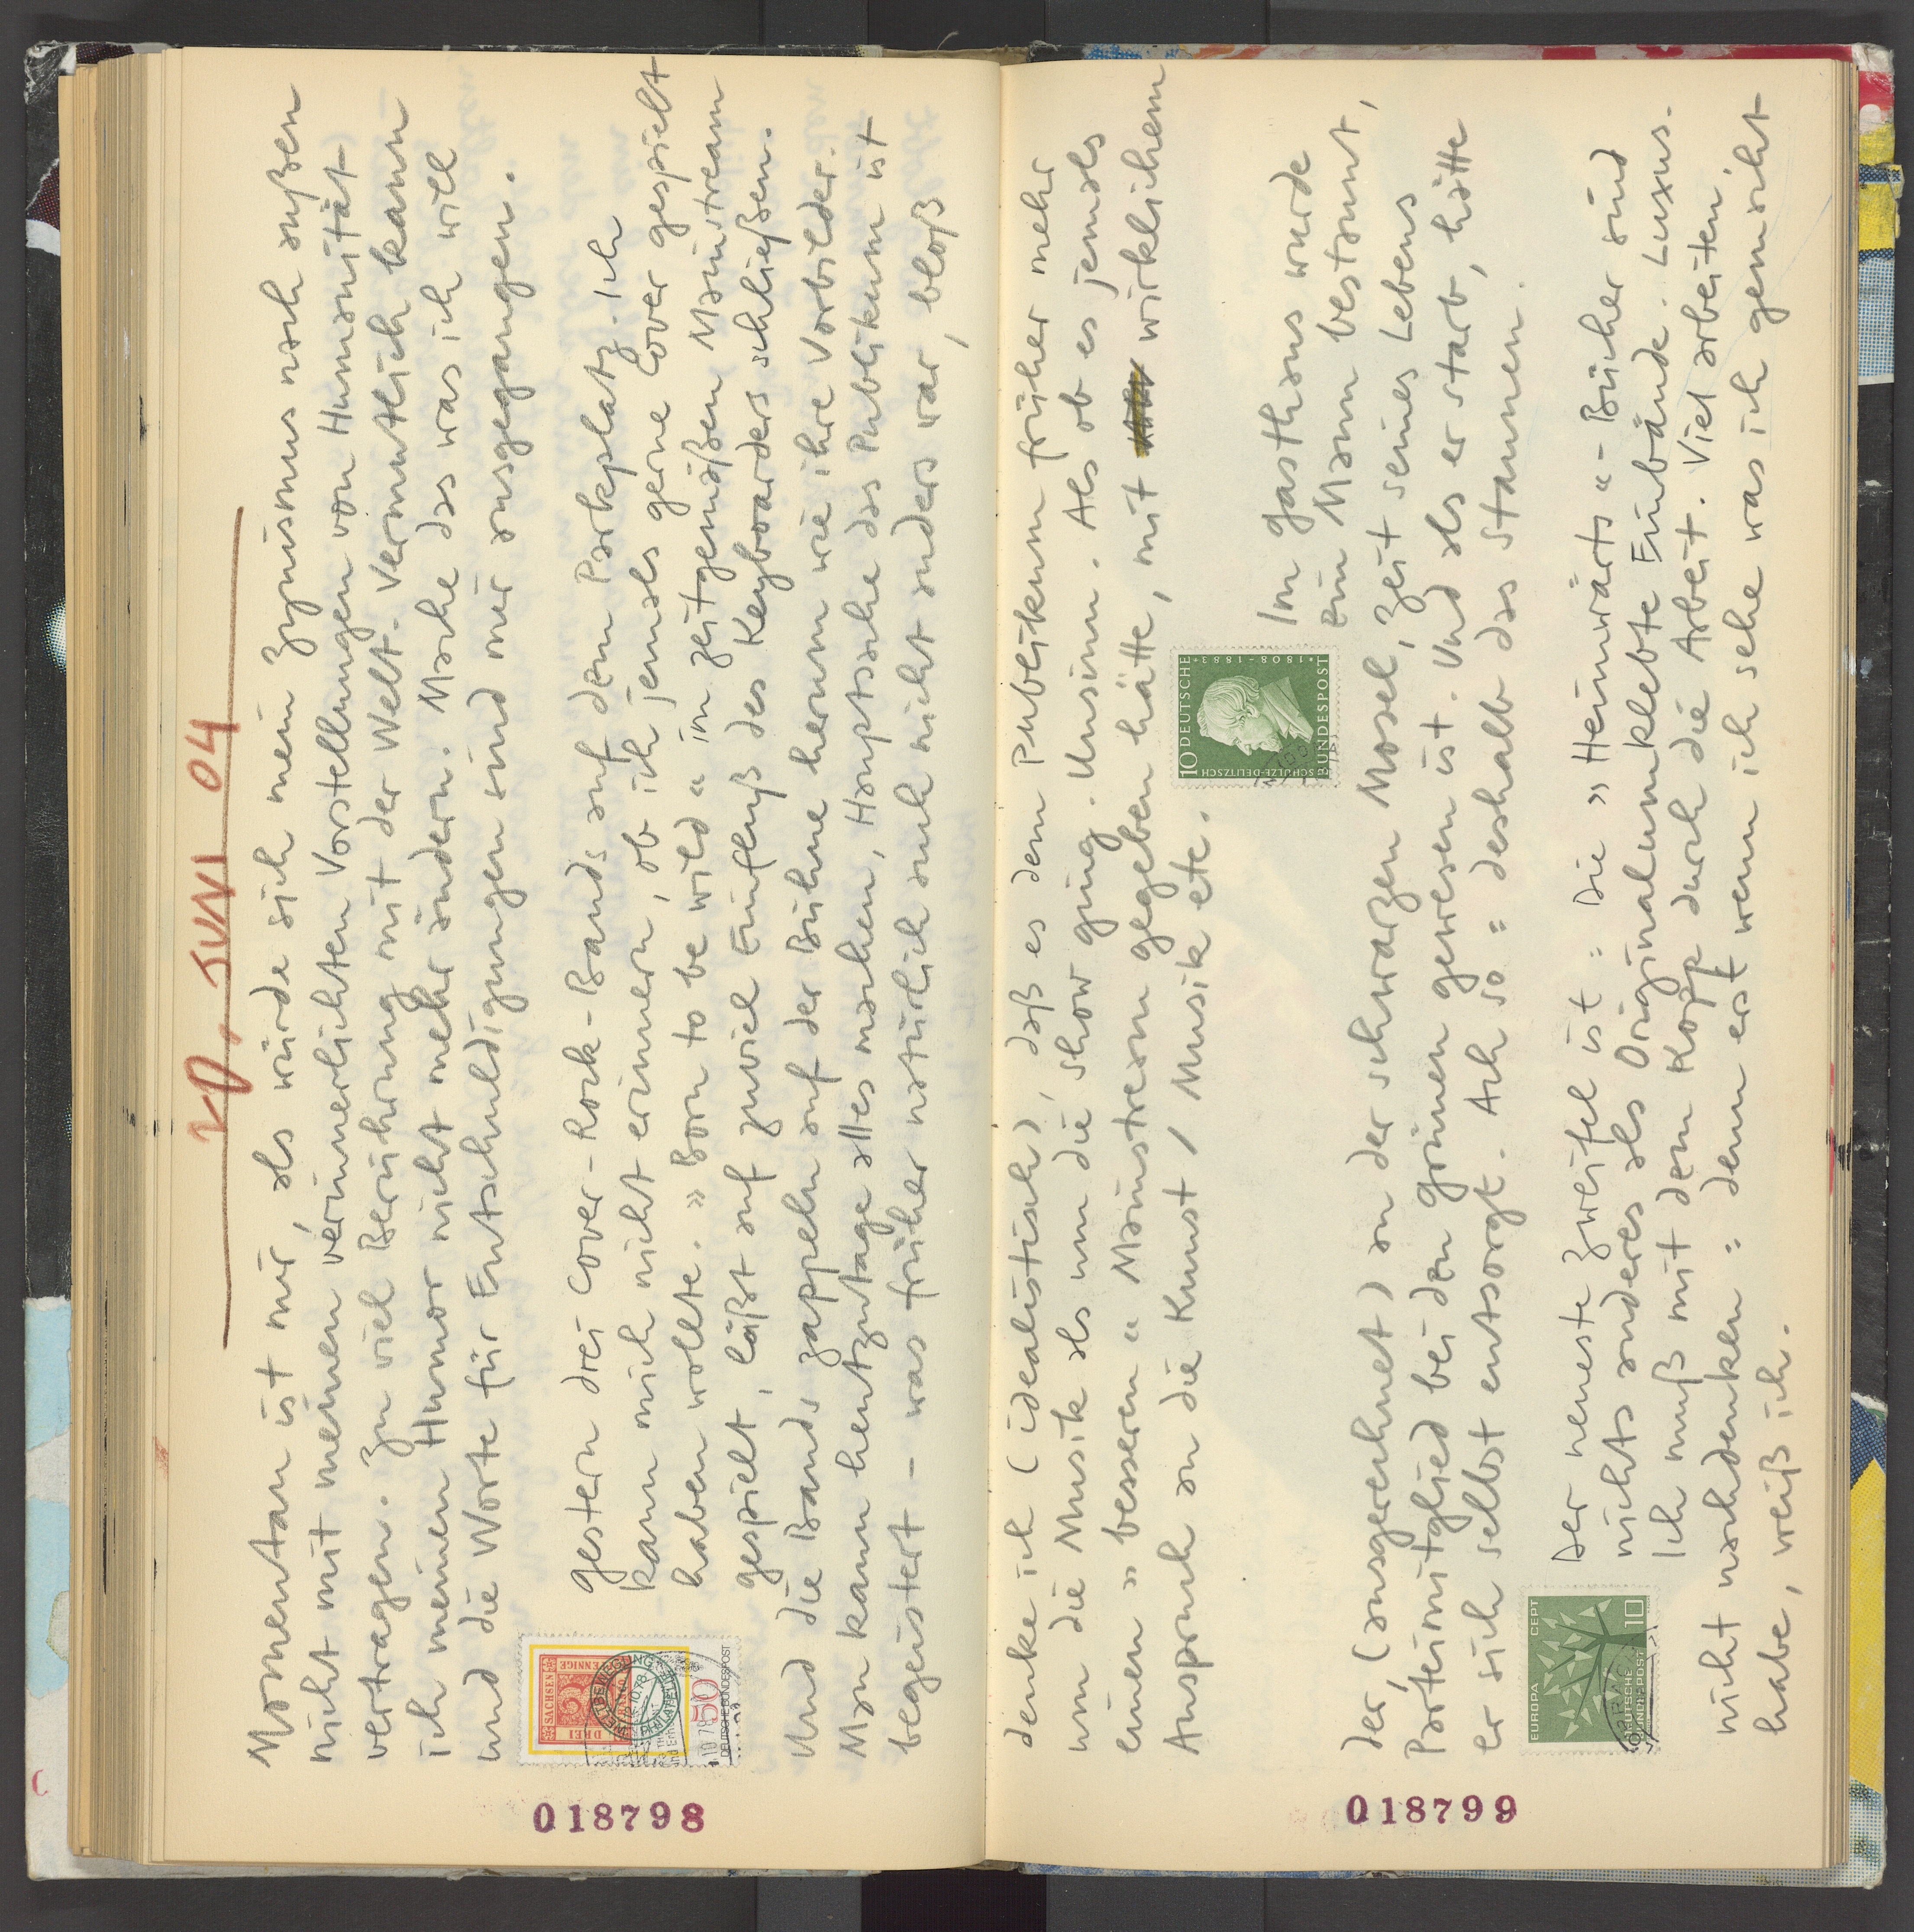 20. JUNI 04
Momentan ist mir, als würde sich mein Zynismus nach außen
nicht mit meinen verinnerlichten Vorstellungen von Humanität
vertragen. Zu viel Berührung mit der Welt. Vermutlich kann
ich meinen Humor nicht mehr ändern. Mache das was ich will
und die Worte für Entschuldigungen sind mir ausgegangen.
Gestern drei Cover-Rock-Bands auf dem Parkplatz. Ich
kann mich nicht erinnern, ob ich jemals gerne Cover gespielt
haben wollte. »Born to be wild« im zeitgemäßen Mainstream
gespielt, läßt auf zuviel Einfluß des Keyboarders schließen.
Und die Bands zappeln auf der Bühne herum wie ihre Vorbilder.
Man kann heutzutage alles machen, Hauptsache das Publikum ist
begeistert – was früher natürlich auch nicht anders war, bloß
SACHSEN
DREI
PFENNIGE
3
50
DEUTSCHE BUNDESPOST
018798
denke ich (idealistisch), daß es dem Publikum früher mehr
um die Musik als um die Show ging. Unsinn. Als ob es jemals
einen »besseren« Mainstream gegeben hätte, mit wirklichem
Anspruch an die Kunst / Musik etc.
10 DEUTSCHE
BUNDESPOST
SCHULZE-DELITZSCH
1808-1883
Im Gasthaus wurde
ein Mann bestaunt,
der, (ausgerechnet) an der schwarzen Mosel, Zeit seines Lebens
Parteimitglied bei den Grünen gewesen ist. Und als er starb, hätte
er sich selbst entsorgt. Ach so = deshalb das Staunen.
EUROPA CEPT
DEUTSCHE
BUNDESPOST
10
Der neueste Zweifel ist = Die »Heimwärts«-Bücher sind
nichts anderes als Originalumklebte Einbände. Luxus.
Ich muß mit dem Kopp durch die Arbeit. Viel arbeiten,
nicht nachdenken = denn erst wenn ich sehe was ich gemacht
habe, weiß ich.
018799